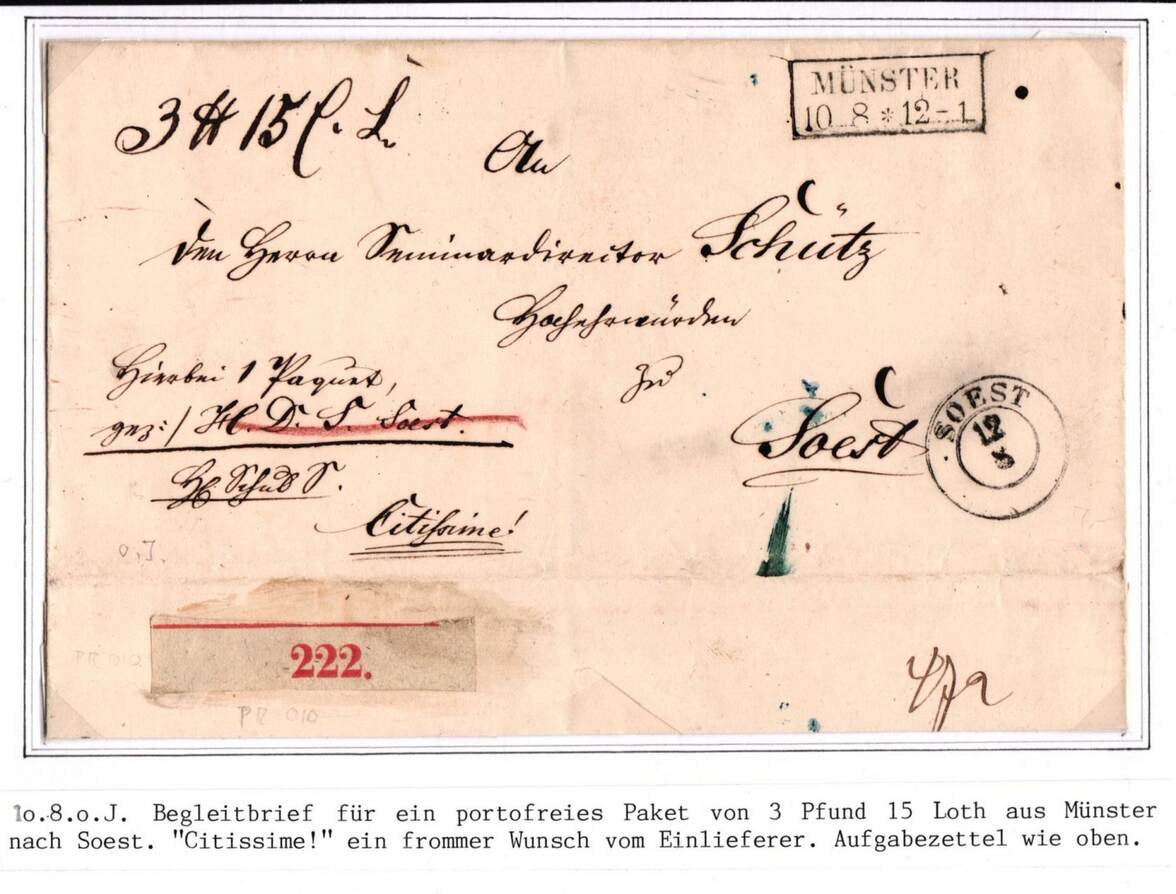 3 ℔ 15 L.
MÜNSTER
10 8 * 12-1
An
den Herrn Seminardirector Schütz
Hochehrwürden
Hierbei 1 Paquet,
zu
gez:/ H. D. S. Soest.
Soest
SOEST
12
8
Schul S.
Citissime!
o.J.
222.
PR 010
10.8.o.J. Begleitbrief für ein portofreies Paket von 3 Pfund 15 Loth aus Münster
nach Soest. "Citissime!" ein frommer Wunsch vom Einlieferer. Aufgabezettel wie oben.